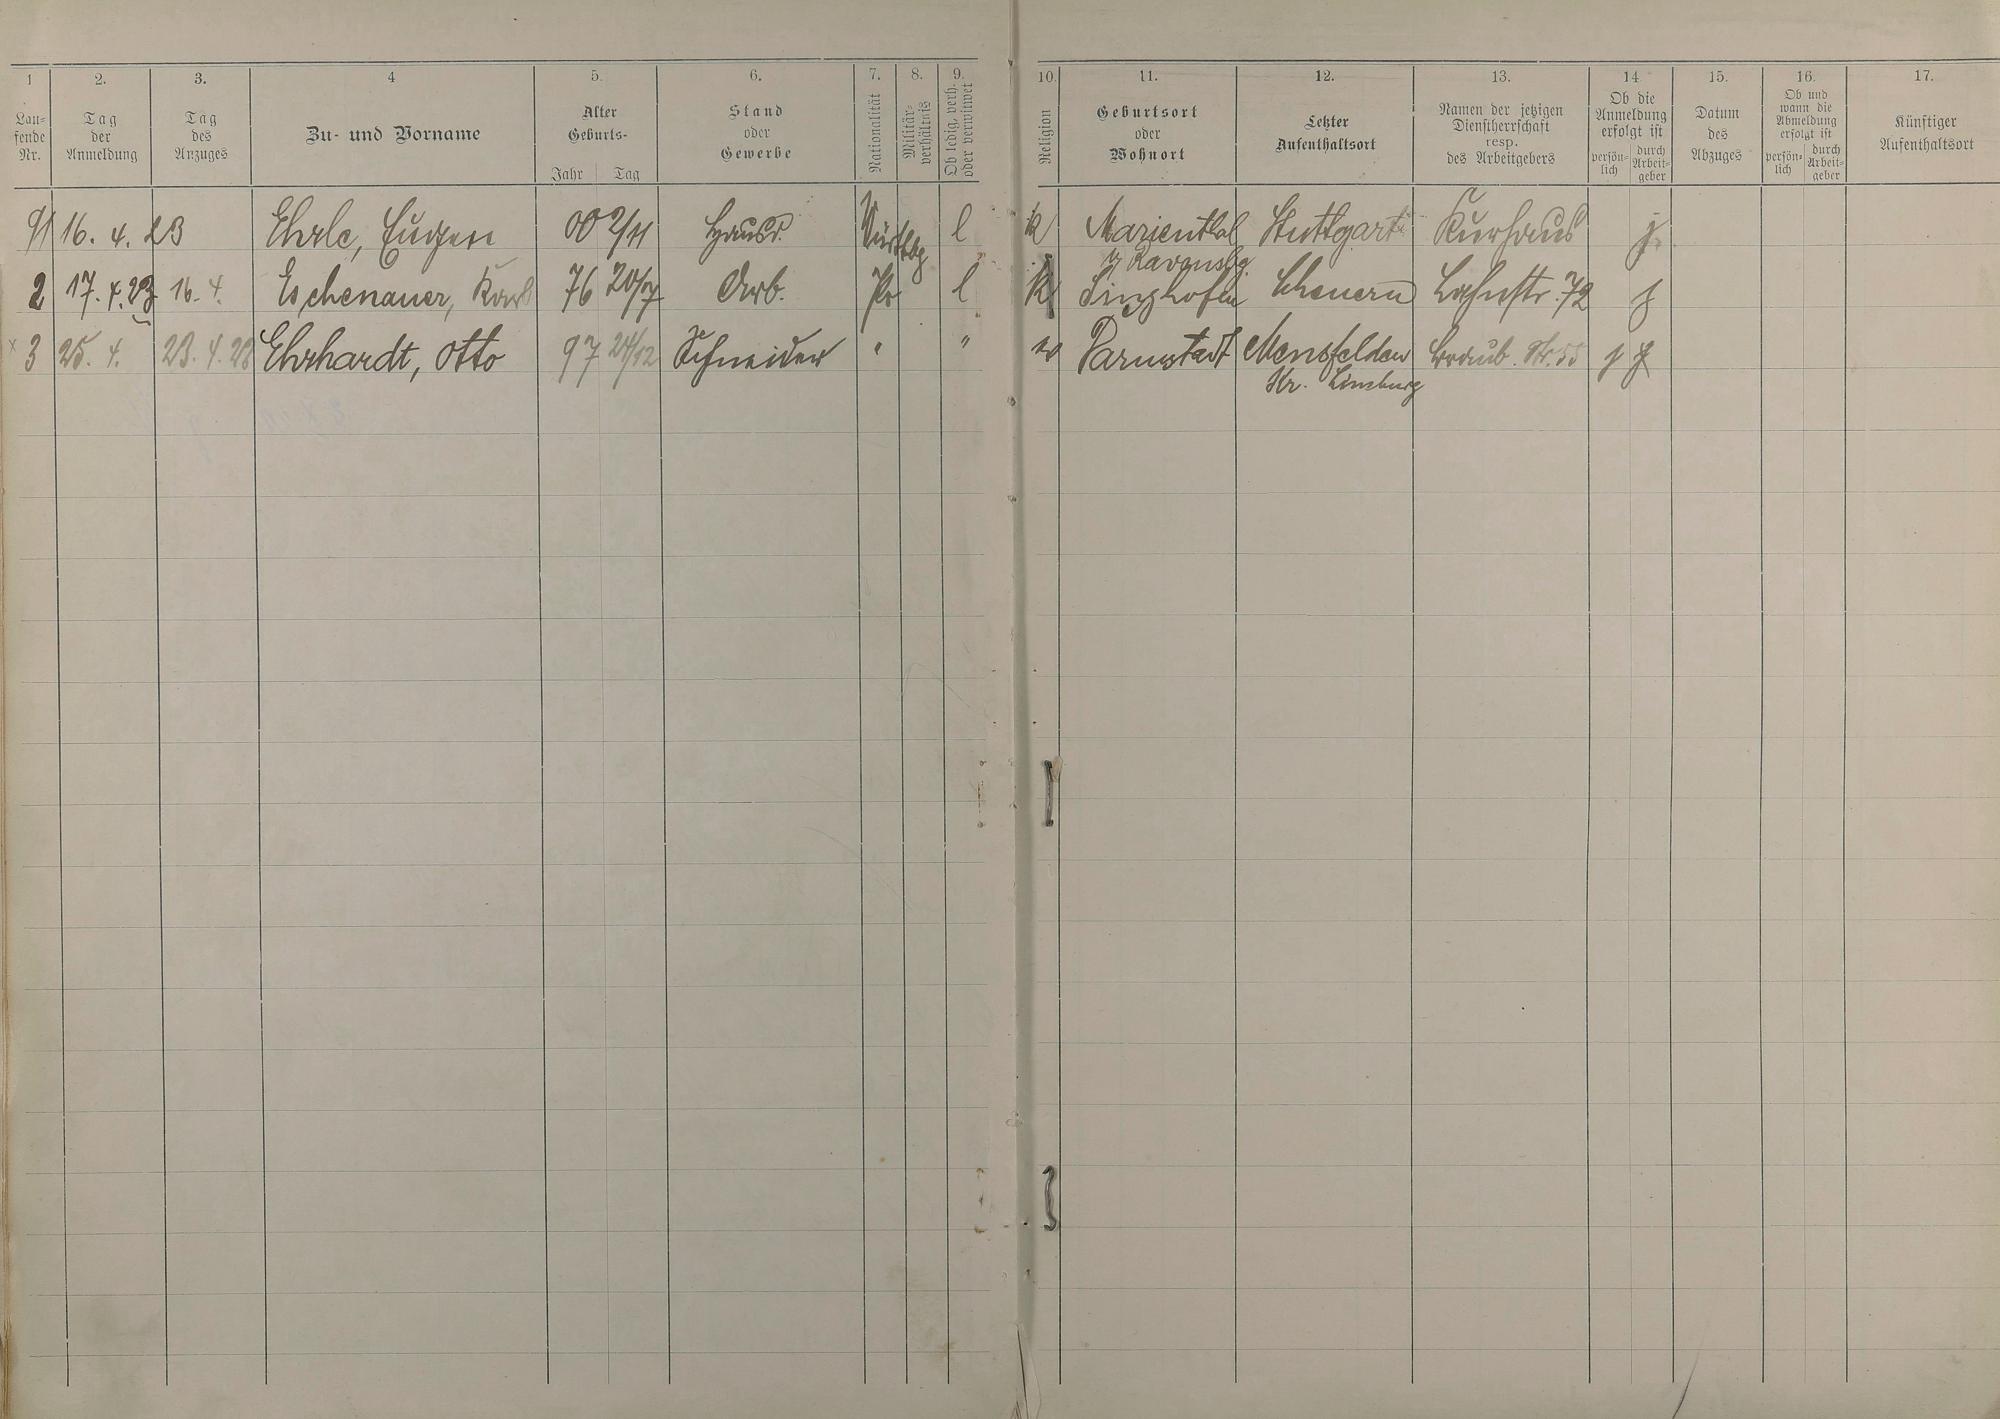 1 2. 3. 4 5. 6. 7. 8. 9. 10. 11. 12. 13. 14. 15. 16. 17.
Lau-
fende
Nr.
Tag
der
Anmeldung
Tag
des
Anzuges
Zu- und Vorname
Alter
Geburts-
Jahr Tag
Stand
oder
Gewerbe
Nationalität
Militär-
verhältnis
Ob ledig, verh.
oder verwitwet
Religion
Geburtsort
oder
Wohnort
Letzter
Aufenthaltsort
Namen der jetzigen
Dienstherrschaft
resp.
des Arbeitgebers
Ob die
Anmeldung
erfolgt ist
persön-
lich
durch
Arbeit-
geber
Datum
des
Abzuges
Ob und
wann die
Abmeldung
erfolgt ist
persön-
lich
durch
Arbeit-
geber
Künftiger
Aufenthaltsort
91 16. 4. 23 Ehrle, Eugen 00 2/11 Hausd. Würtbg l k Marienthal Stuttgart Kurhaus j.
/ Ravensbg.
2 17. 4. 23 16. 4. Eschenauer, Karl 76 20/7 Arb. Pr l k Singhofen Scheuern Lahnstr. 72 j
3 25. 4. 23. 4. 23 Ehrhardt, Otto 97 24/12 Schneider " " Darmstadt Mensfelden Str. 55 j j
Kr. Limburg